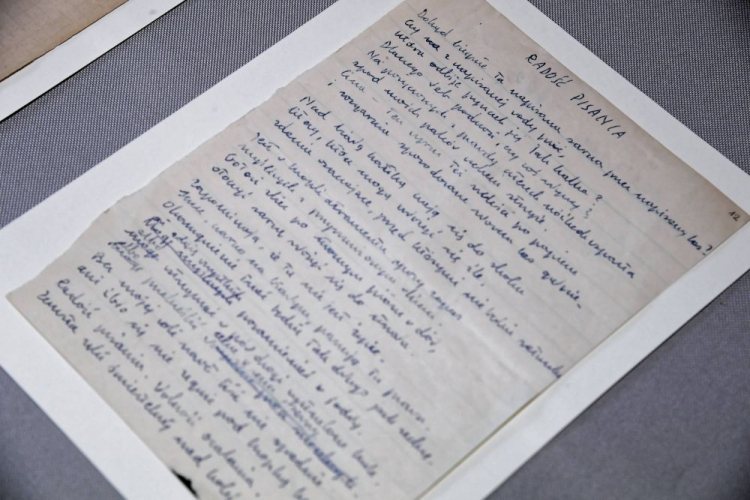 RADOŚĆ PISANIA
12
Dokąd biegnie ta napisana sarna przez napisany las?
Czy z napisanej wody pić,
która odbije pyszczek jej jak kalka?
Dlaczego łeb podnosi, czy coś słyszy?
Na pożyczonych z prawdy czterech nóżkach wsparta
spod moich palców uchem strzyże.
Cisza – ten wyraz też szeleści po papierze
i rozgarnia spowodowane słowem las gałęzie.
Nad białą kartką czają się do skoku
litery, które mogą ułożyć się źle,
zdania osaczające, przed którymi nie będzie ratunku.
Jest w kropli atramentu spory zapas
myśliwych z przymrużonym okiem
zbiec po stromym piórze w dół,
otoczyć sarnę, złożyć się do strzału.
Zapominają, że tu nie jest życie.
Inne, czarno na białym panują tu prawa.
Okamgnienie trwać będzie tak długo jak zechcę,
Bez mojej woli nawet liść nie spadnie
ani źdźbło się nie ugnie pod kropką
Radość pisania. Możność utrwalania.
Zemsta ręki śmiertelnej